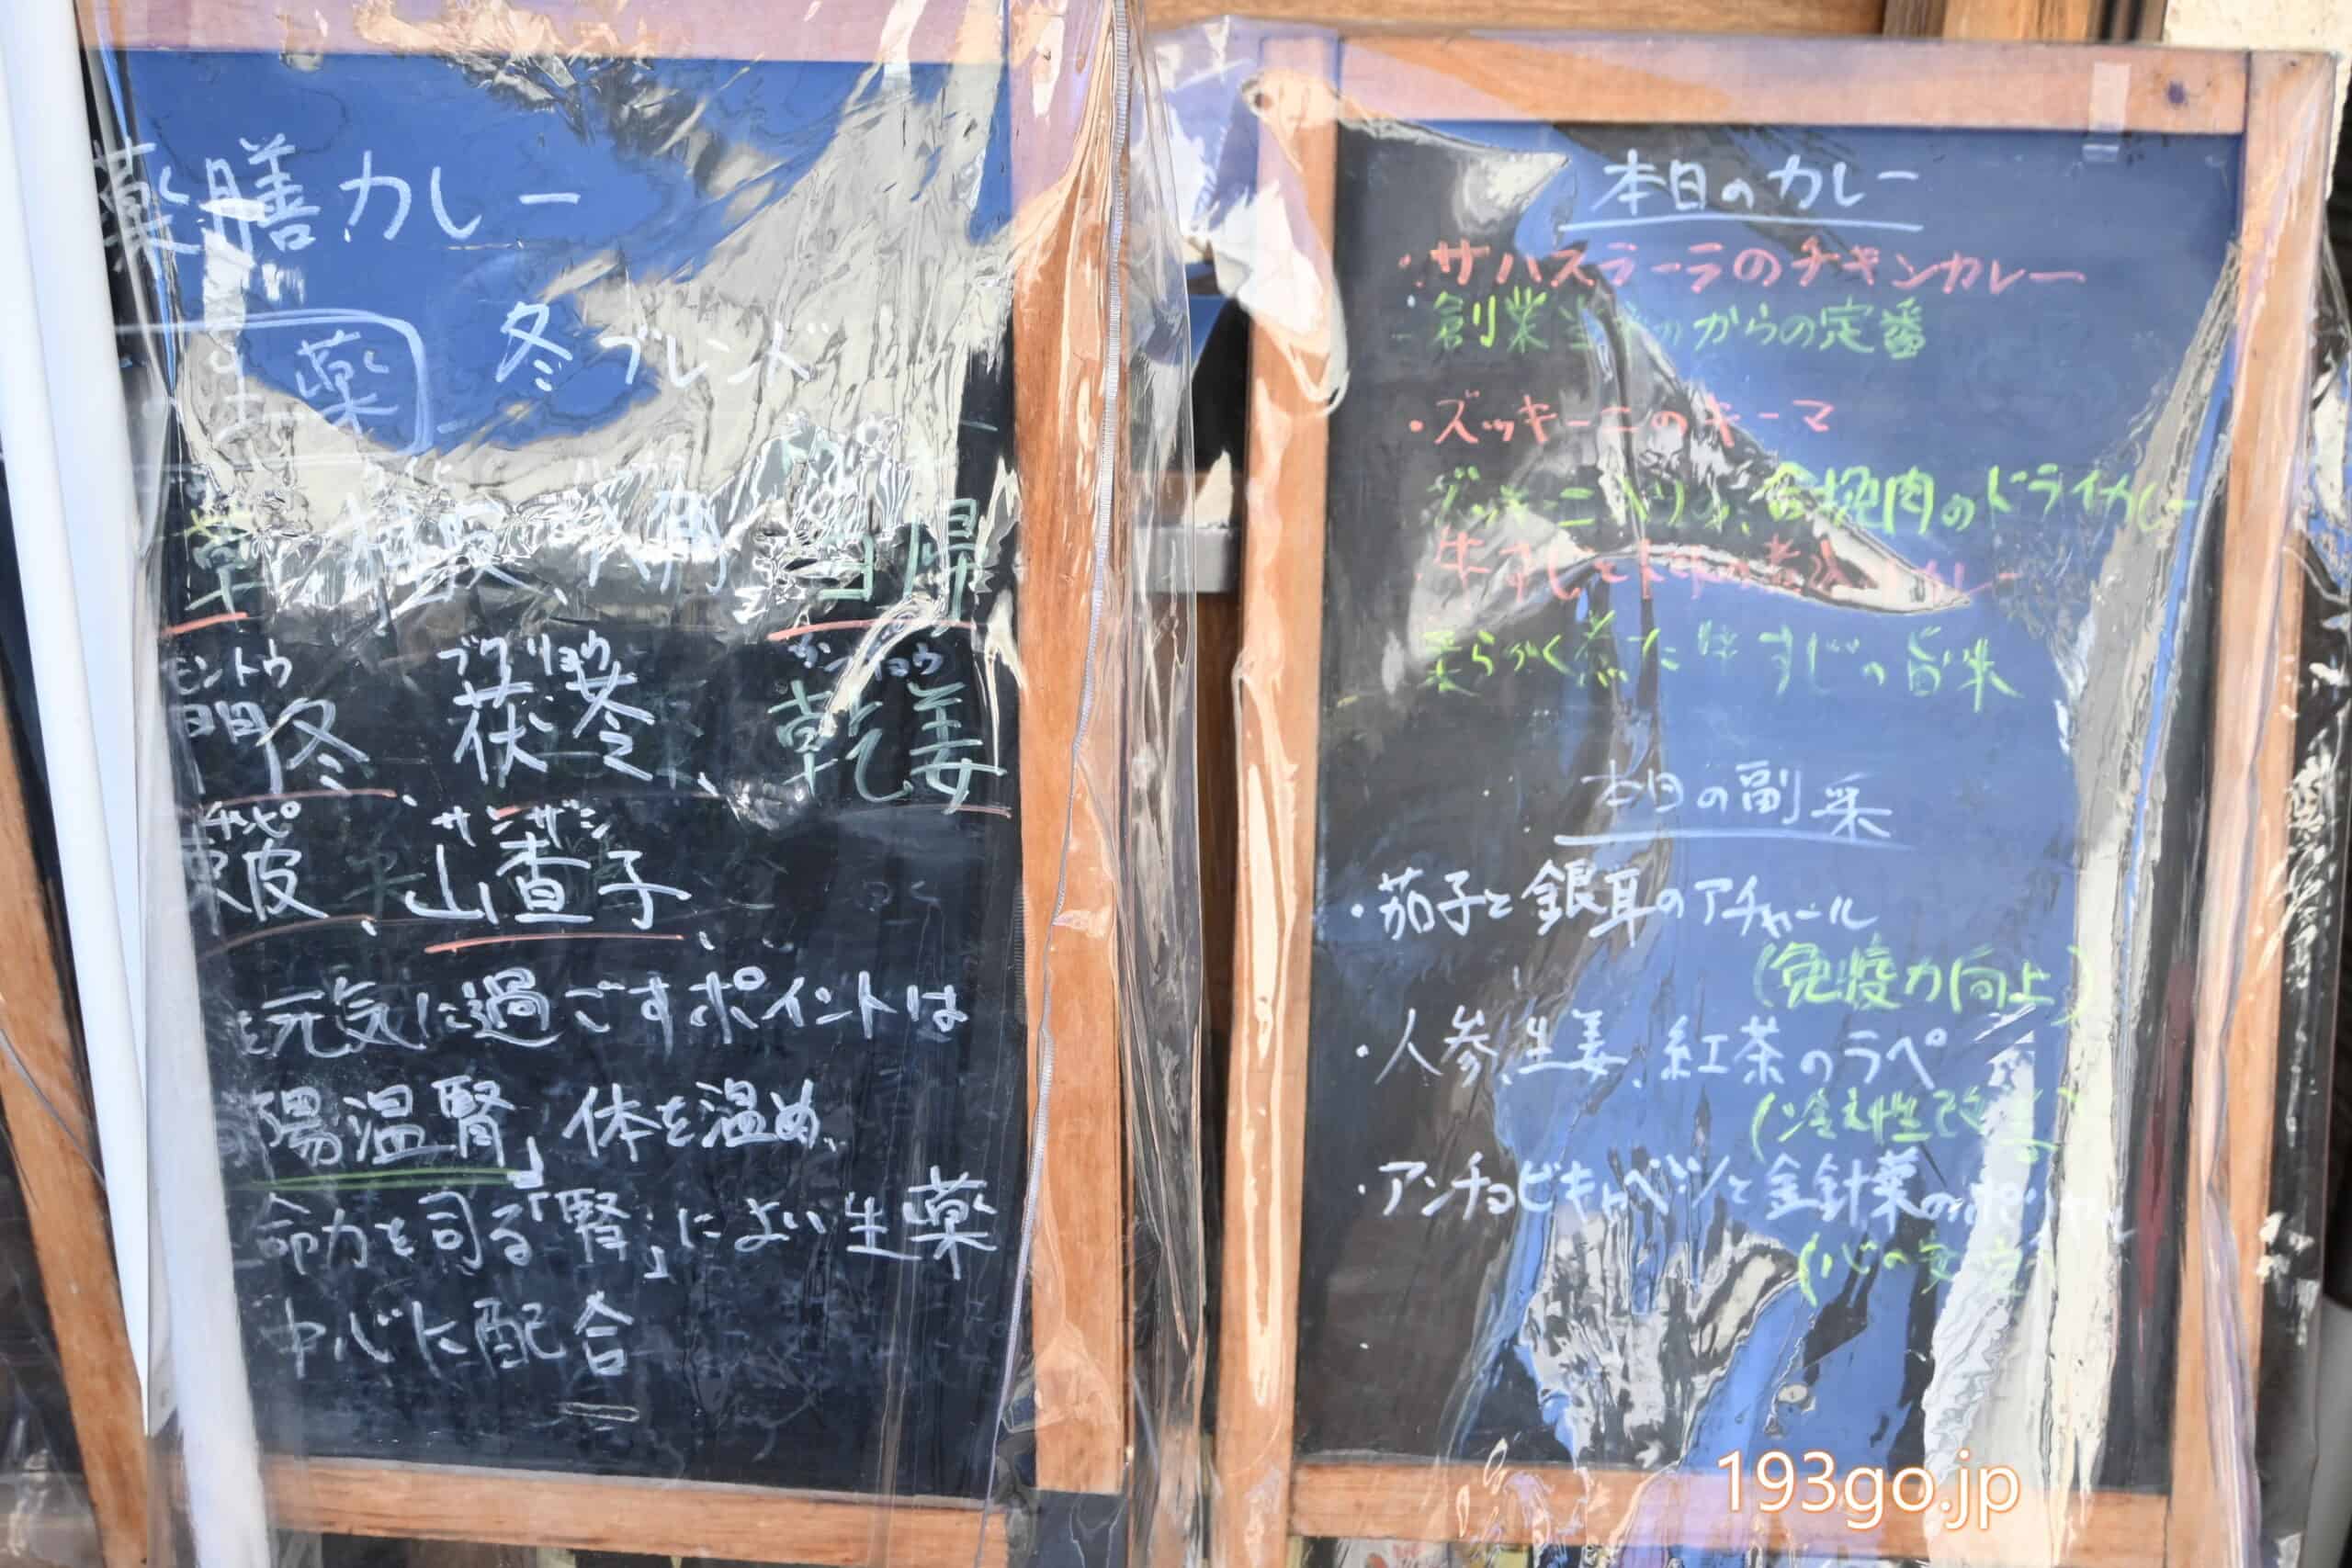 薬膳カレー
冬ブレンド
生薬
草 桂皮、八角、当帰
モントウ ブクリョウ カンキョウ
門冬、茯苓、乾姜
チンピ サンザシ
陳皮、山査子、
元気に過ごすポイントは
陽温腎」体を温め、
命力を司る「腎」によい生薬
中心に配合
本日のカレー
・サハスラーラのチキンカレー
創業当初からの定番
・ズッキーニのキーマ
ズッキーニ入りの、合挽肉のドライカレー
牛すじ カレー
柔らかく煮た牛すじの旨味
本日の副菜
・茄子と銀耳のアチャール
(免疫力向上)
・人参、生姜、紅茶のラペ
(冷え性改善)
・アンチョビキャベツと金針菜の
(心の安定)
193go.jp